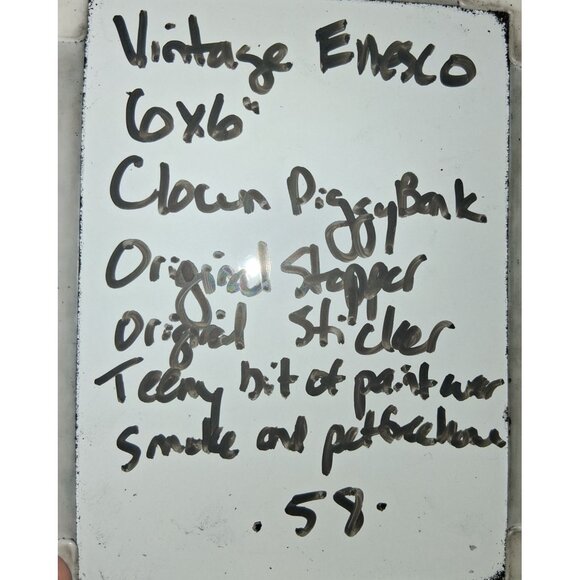 Vintage Enesco
6x6"
Clown Piggy Bank
Original Stopper
Original Sticker
Teeny bit of paint wear
Smoke and pet free home
. 58 .